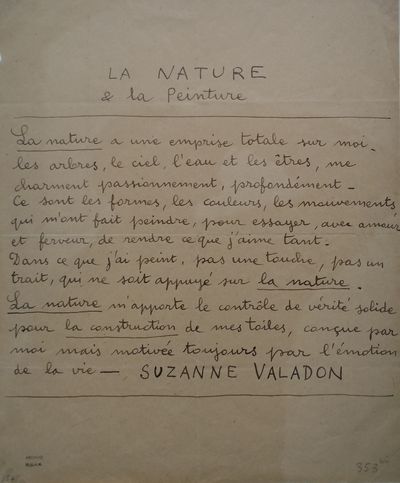 LA NATURE
& la Peinture
La nature a une emprise totale sur moi.
les arbres, le ciel, l'eau et les êtres, me
charment passionnement, profondément _
Ce sont les formes, les couleurs, les mouvements
qui m'ont fait peindre, pour essayer, avec amour
et ferveur, de rendre ce que j'aime tant.
Dans ce que j'ai peint, pas une touche, pas un
trait, qui ne soit appuyé sur la nature.
La nature m'apporte le contrôle de vérité solide
pour la construction de mes toiles, conçue par
moi mais motivée toujours par l'émotion
de la vie — SUZANNE VALADON
353